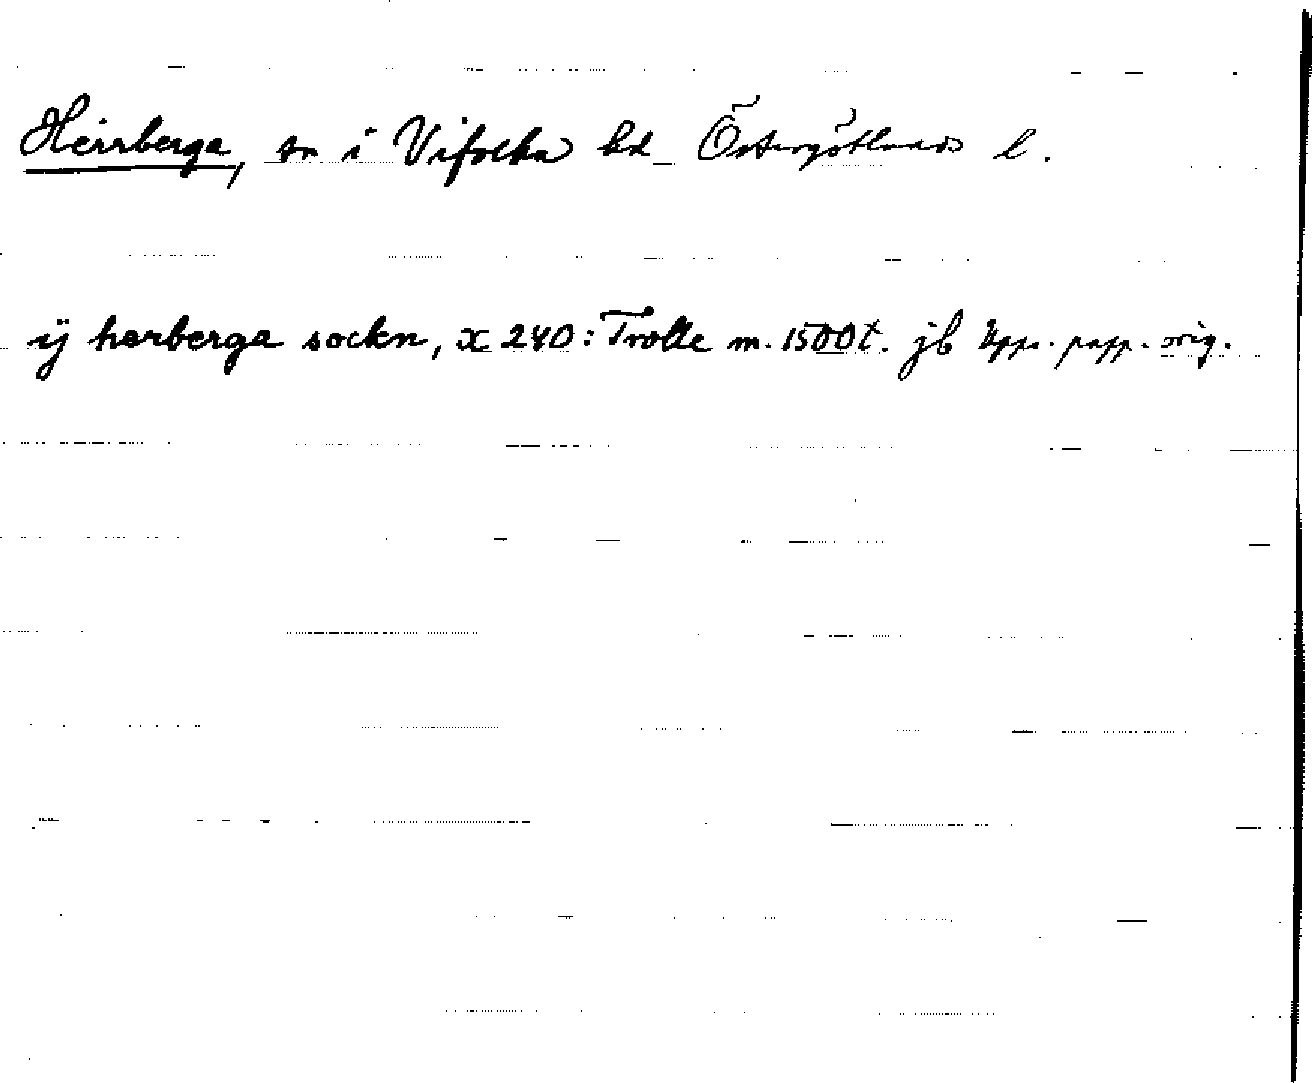 Herrberga, sn i Vifolka hd Östergötlands l.
ÿ harberga sockn, x 240: Trolle m. 1500t. jb Upps. papp. orig.